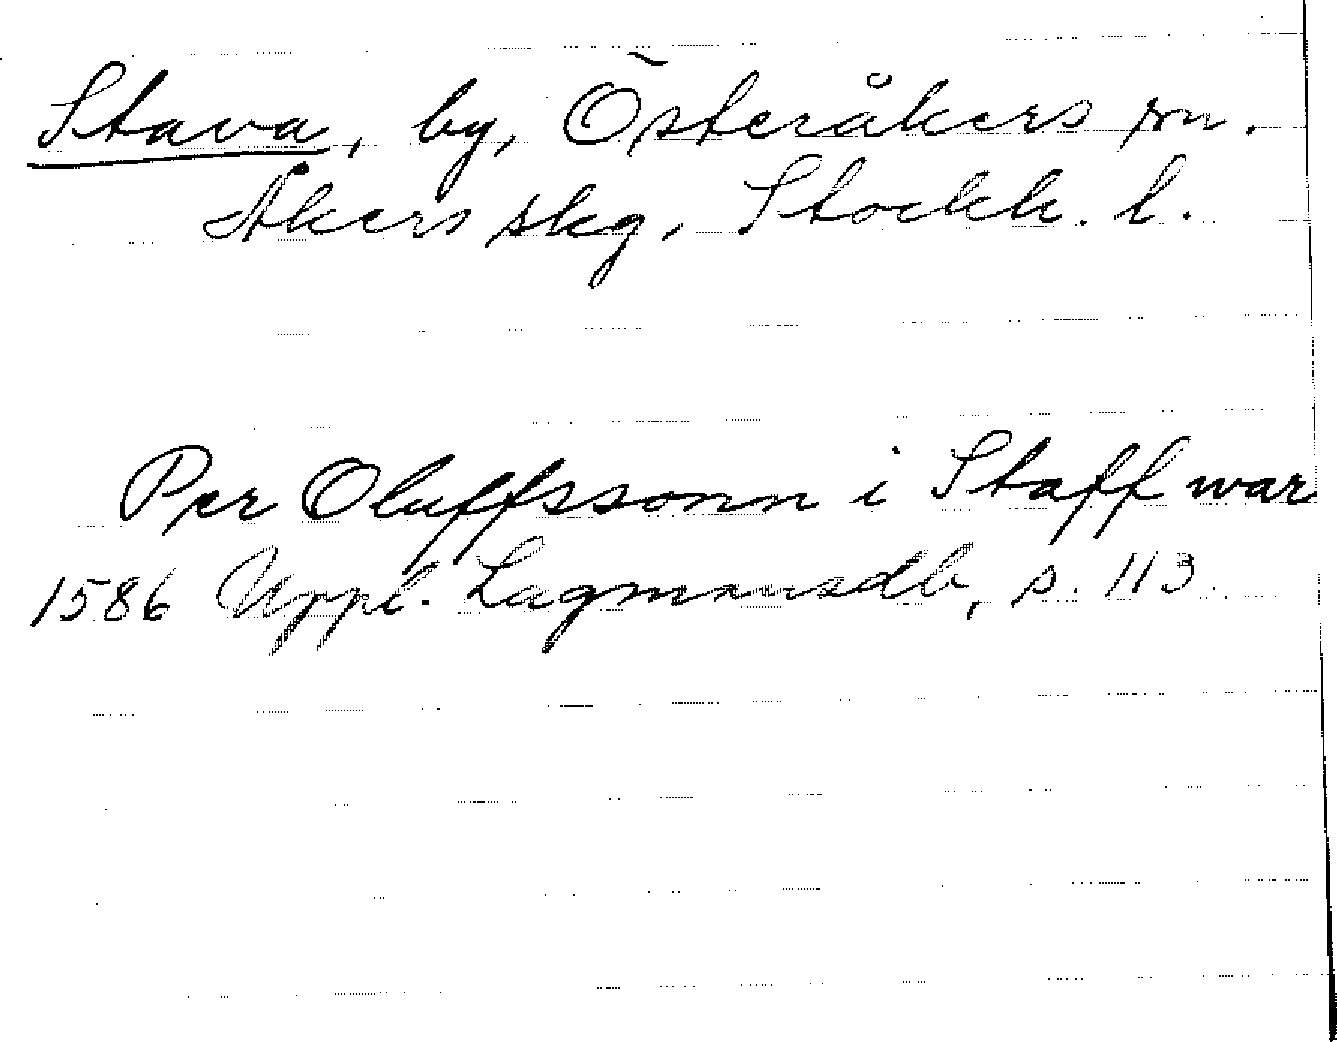 Stava, by, Österåkers sn.
Åkers skg, Stockh. l.
Per Oluffssonn i Staffwar
1586 Uppl. Lagmansdb, s. 113.